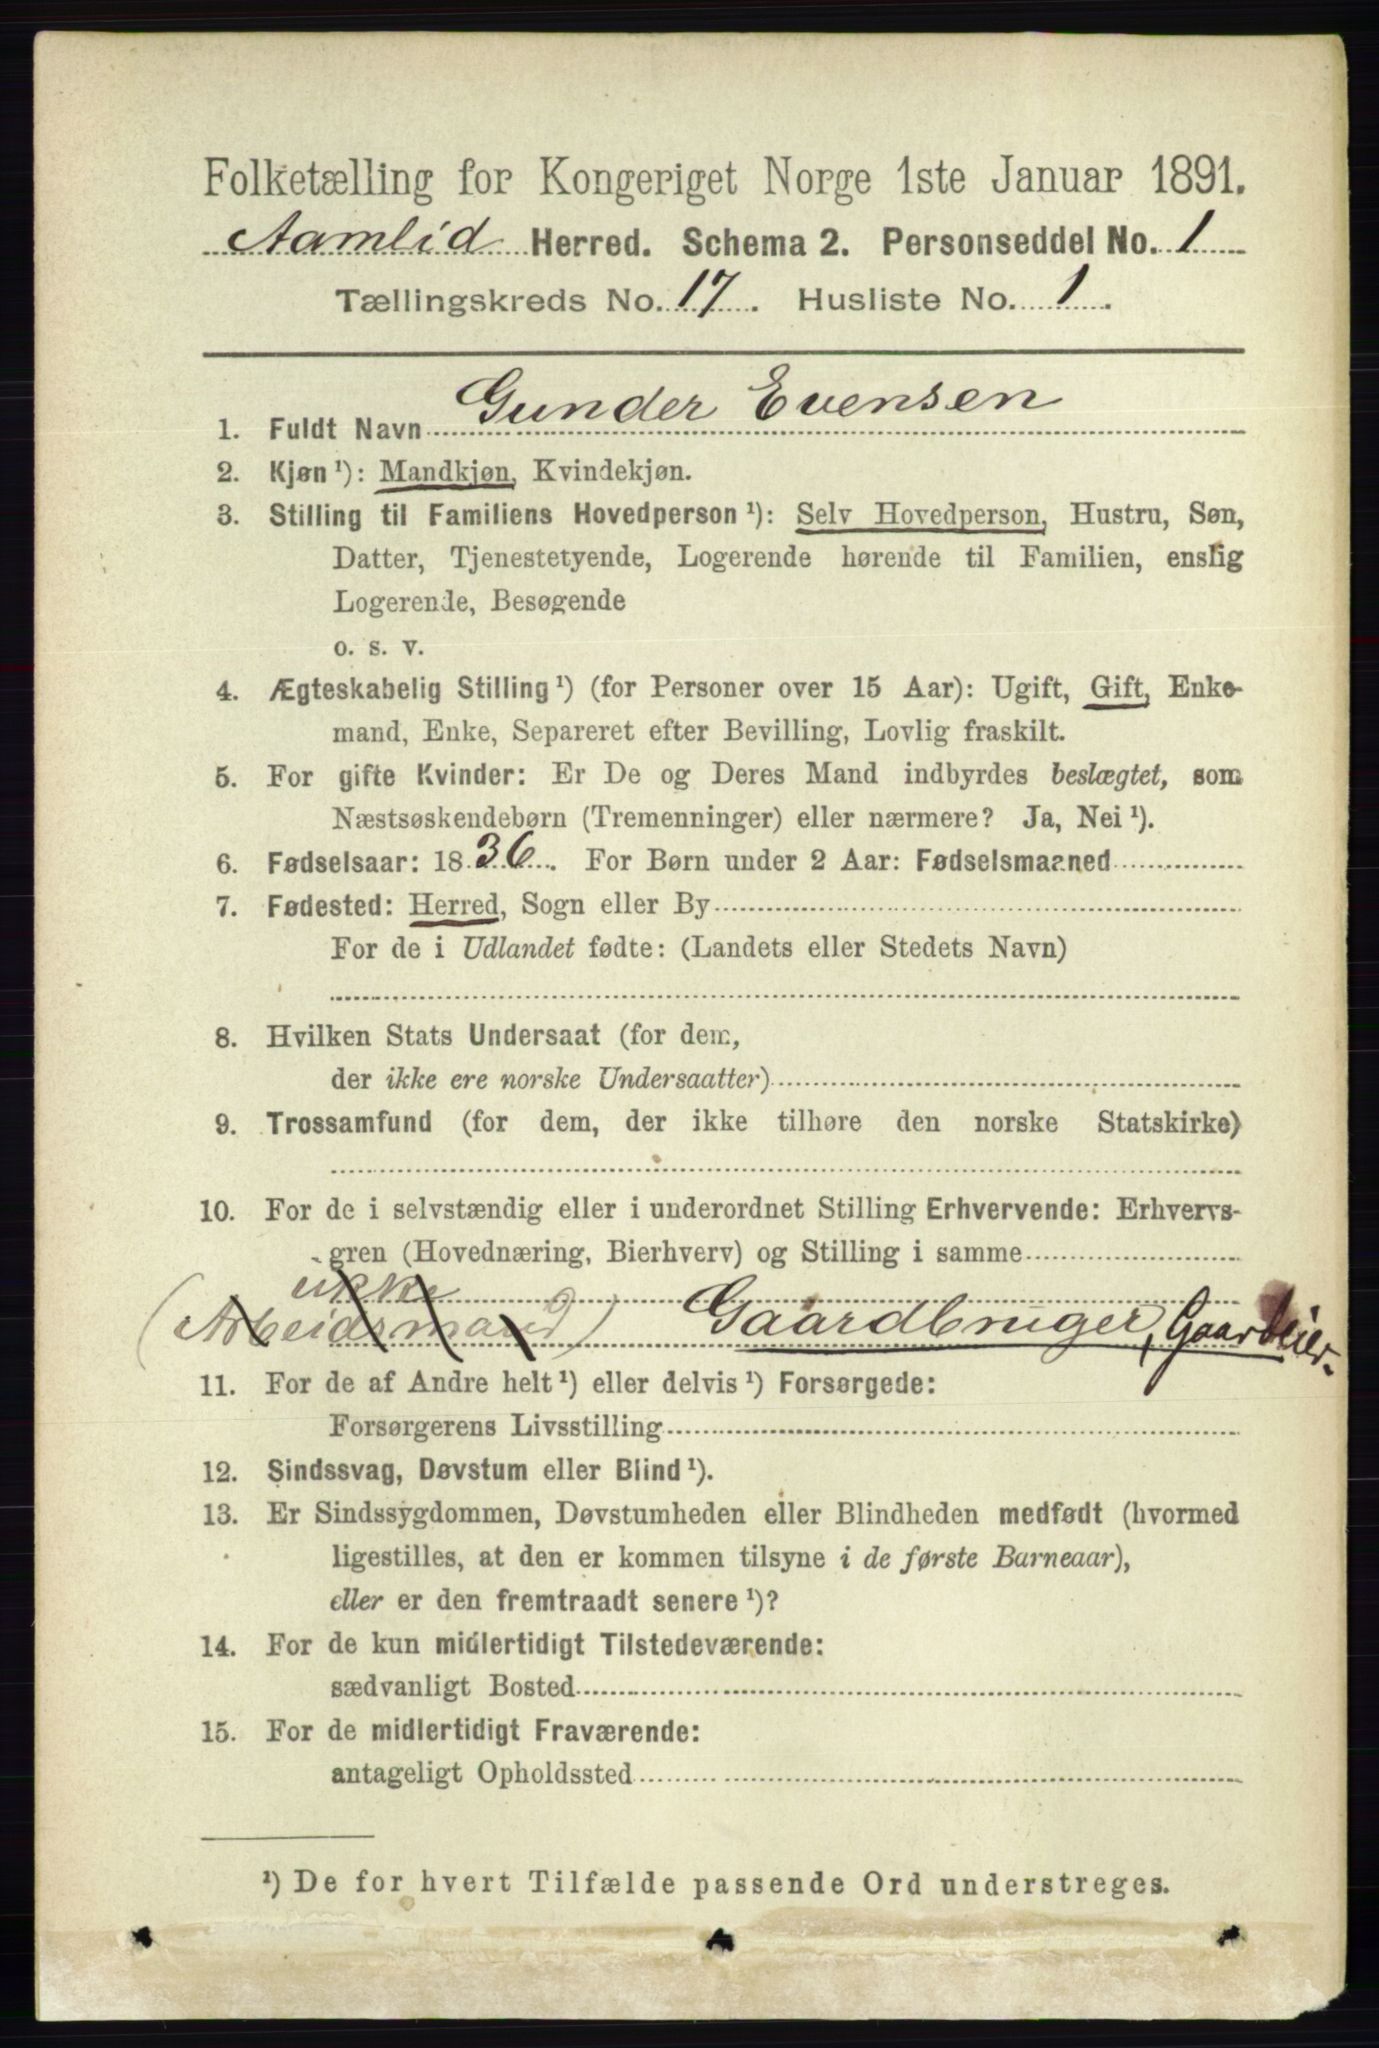 Folketælling for Kongeriget Norge 1ste Januar 1891.
Aamlid Herred. Schema 2. Personseddel No. 1
Tællingskreds No. 17. Husliste No. 1.
1. Fuldt Navn Gunder Evensen
2. Kjøn ¹): Mandkjøn, Kvindekjøn.
3. Stilling til Familiens Hovedperson ¹): Selv Hovedperson, Hustru, Søn,
Datter, Tjenestetyende, Logerende hørende til Familien, enslig
Logerende, Besøgende
o. s. v.
4. Ægteskabelig Stilling ¹) (for Personer over 15 Aar): Ugift, Gift, Enke-
mand, Enke, Separeret efter Bevilling, Lovlig fraskilt.
5. For gifte Kvinder: Er De og Deres Mand indbyrdes beslægtet, som
Næstsøskendebørn (Tremenninger) eller nærmere? Ja, Nei ¹).
6. Fødselsaar: 1836. For Børn under 2 Aar: Fødselsmaaned
7. Fødested: Herred, Sogn eller By
For de i Udlandet fødte: (Landets eller Stedets Navn)
8. Hvilken Stats Undersaat (for dem,
der ikke ere norske Undersaatter)
9. Trossamfund (for dem, der ikke tilhøre den norske Statskirke)
10. For de i selvstændig eller i underordnet Stilling Erhvervende: Erhvervs-
gren (Hovednæring, Bierhverv) og Stilling i samme
ikke
(Arbeidsmand) Gaardbruger, Gaardeier.
11. For de af Andre helt ¹) eller delvis ¹) Forsørgede:
Forsørgerens Livsstilling
12. Sindssvag, Døvstum eller Blind ¹).
13. Er Sindssygdommen, Døvstumheden eller Blindheden medfødt (hvormed
ligestilles, at den er kommen tilsyne i de første Barneaar),
eller er den fremtraadt senere ¹)?
14. For de kun midlertidigt Tilstedeværende:
sædvanligt Bosted
15. For de midlertidigt Fraværende:
antageligt Opholdssted
¹) De for hvert Tilfælde passende Ord understreges.